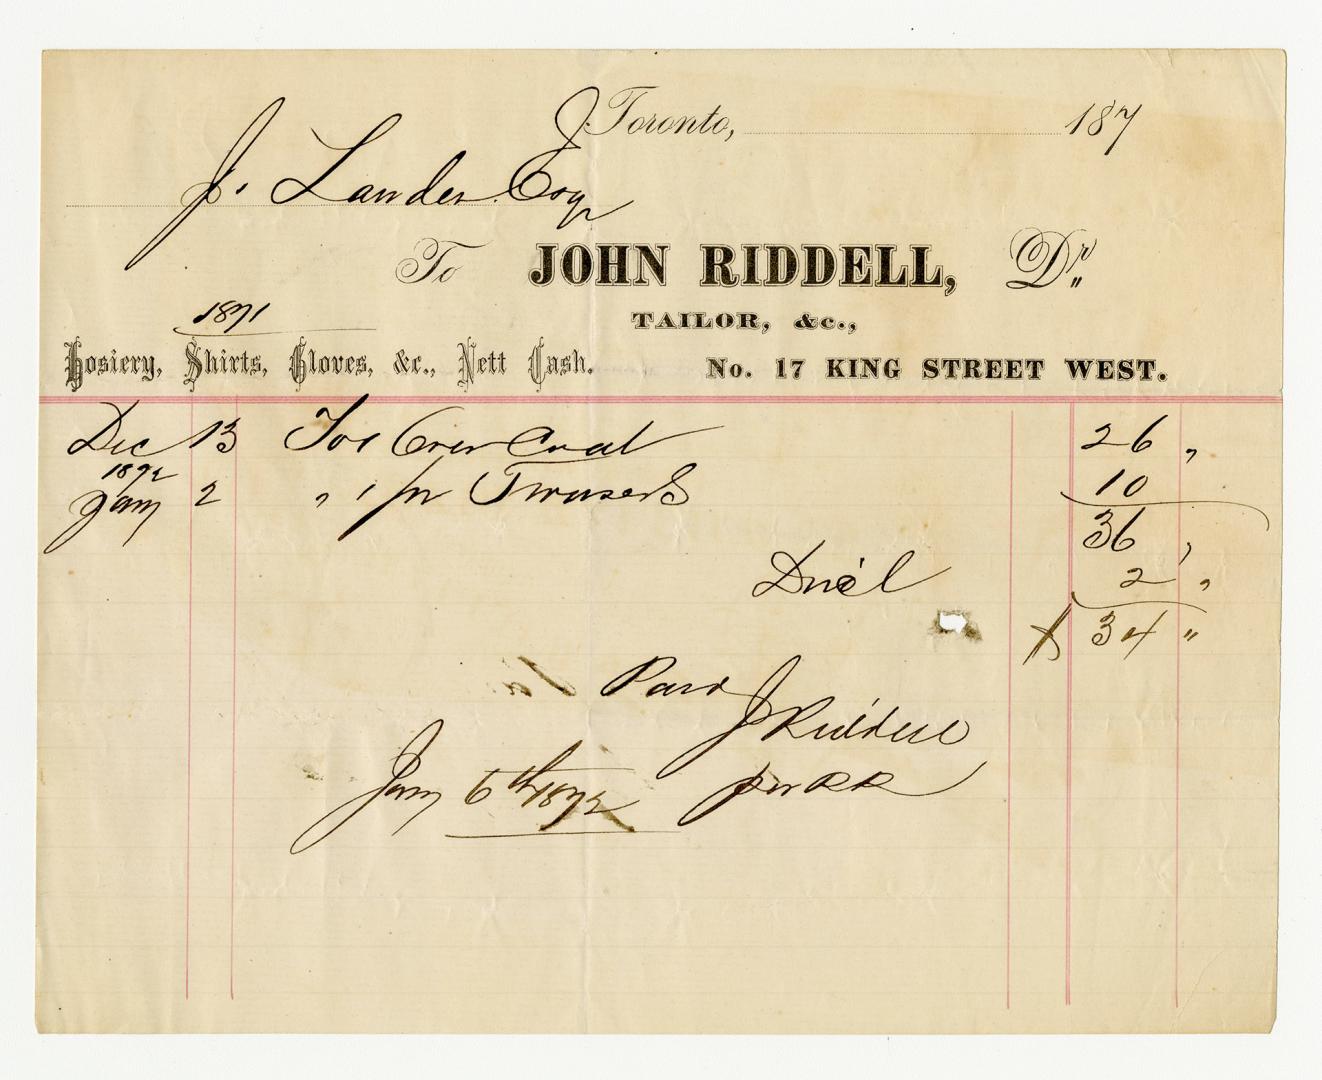 Toronto, 187
J. Lauder Esqr
To JOHN RIDDELL, Dr.
TAILOR, &c.,
1871
Hosiery, Shirts, Gloves, &c., Nett Cash. No. 17 KING STREET WEST.
Dec 13 To 1 Over Coat 26 "
1872
Jany 2 " 1 pr Trousers 10
36 "
2 "
$ 34 "
Paid
J Riddell
Jany 6th 1872 per RR